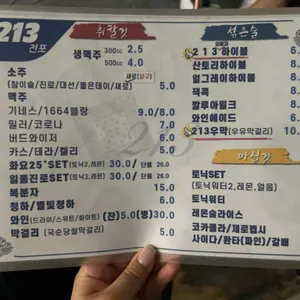 213
전포
취할것
생맥주 300cc 2.5
500cc 4.0
소주 새로(살구) 5.0
(참이슬/진로/대선/좋은데이/새로)
맥주
기네스/1664블랑 9.0/8.0
밀러/코로나 7.0
버드와이저 6.0
카스/테라/켈리 5.0
화요25˚SET(토닉2,레몬) 30.0/ 단품 26.0
일품진로SET(토닉2,레몬) 30.0/ 단품 26.0
복분자 15.0
청하/별빛청하 6.0
와인(드라이/스위트/화이트) (잔)5.0(병)30.0
막걸리 (국순당쌀막걸리) 5.0
섞은술
213하이볼 6.
산토리하이볼
얼그레이하이볼
잭콕
깔루아밀크
와인에이드
213우막(우유막걸리) 10.
마실것
토닉SET
(토닉워터2,레몬,얼음)
토닉워터
레몬슬라이스
코카콜라/제로펩시
사이다/환타(파인)/갈배